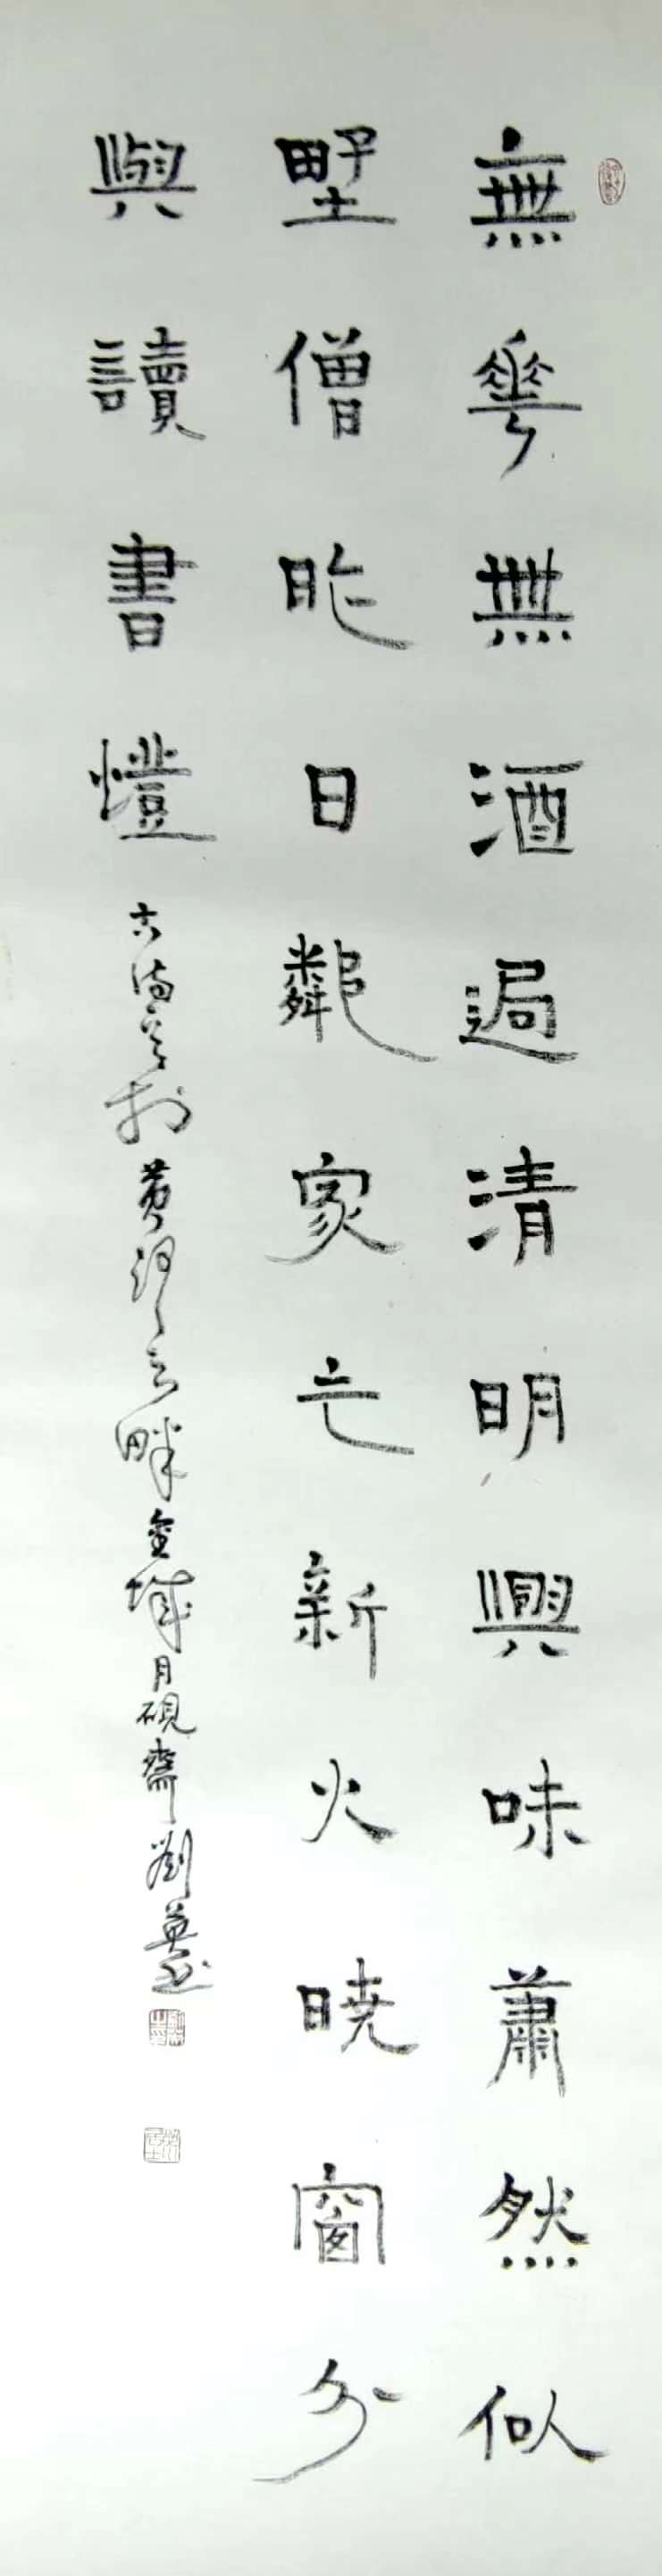 無華無酒過清明興味蕭然似
野僧昨日鄰家亡新火曉窗分
與讀書燈
古詩一首於黃河之畔金城月硯齋劉英書